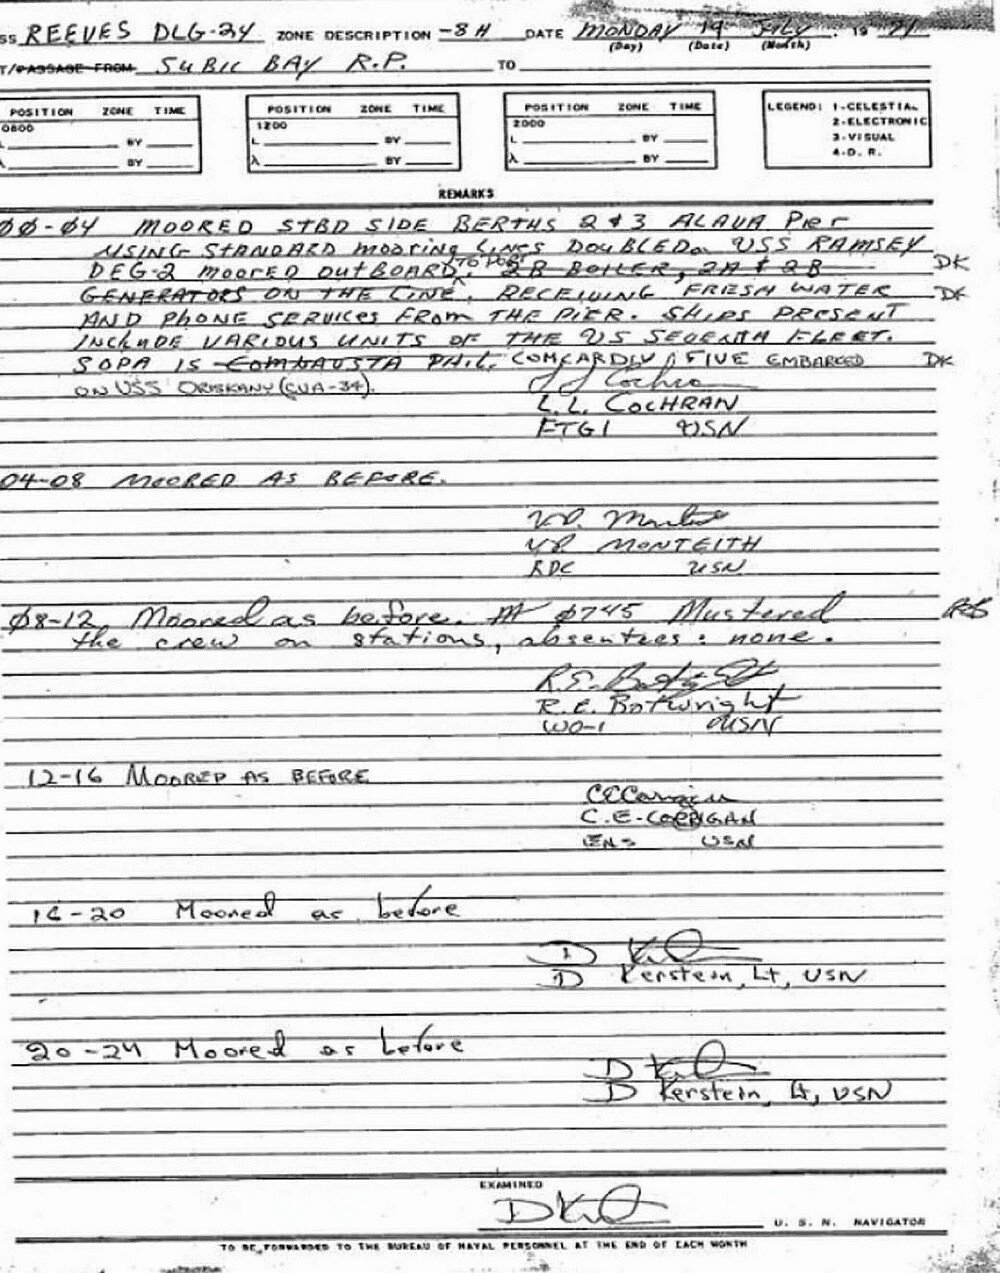 SS REEVES DLG-24 ZONE DESCRIPTION -8H DATE MONDAY 19 JULY 19 71
(Day) (Date) (Month)
T/PASSAGE FROM SUBIC BAY R.P. TO
POSITION ZONE TIME POSITION ZONE TIME POSITION ZONE TIME LEGEND: 1-CELESTIAL
0800 1200 2000 2-ELECTRONIC
L BY L BY L BY 3-VISUAL
λ BY λ BY λ BY 4-D. R.
REMARKS
00-04 MOORED STBD SIDE BERTHS 2 & 3 ALAVA PIER
USING STANDARD MOORING LINES DOUBLED. USS RAMSEY
DEG-2 MOORED OUTBOARD TO PORT. 2B BOILER, 2A & 2B DK
GENERATORS ON THE LINE. RECEIVING FRESH WATER DK
AND PHONE SERVICES FROM THE PIER. SHIPS PRESENT
INCLUDE VARIOUS UNITS OF THE US SEVENTH FLEET.
SOPA IS COMNAVSTA PHIL. COMCARDIV FIVE EMBARKED DK
ON USS ORISKANY (CVA-34).
L. L. COCHRAN
FTG1 USN
04-08 MOORED AS BEFORE.
MONTEITH
RDC USN
08-12 Moored as before. At 0745 Mustered
the crew on stations, absentees: none.
R.E. Botwright
WO-1 USN
12-16 MOORED AS BEFORE
C.E. CORRIGAN
ENS USN
16-20 Moored as before
D Kerstein, Lt, USN
20-24 Moored as before
D Kerstein, Lt, USN
EXAMINED
U. S. N. NAVIGATOR
TO BE FORWARDED TO THE BUREAU OF NAVAL PERSONNEL AT THE END OF EACH MONTH